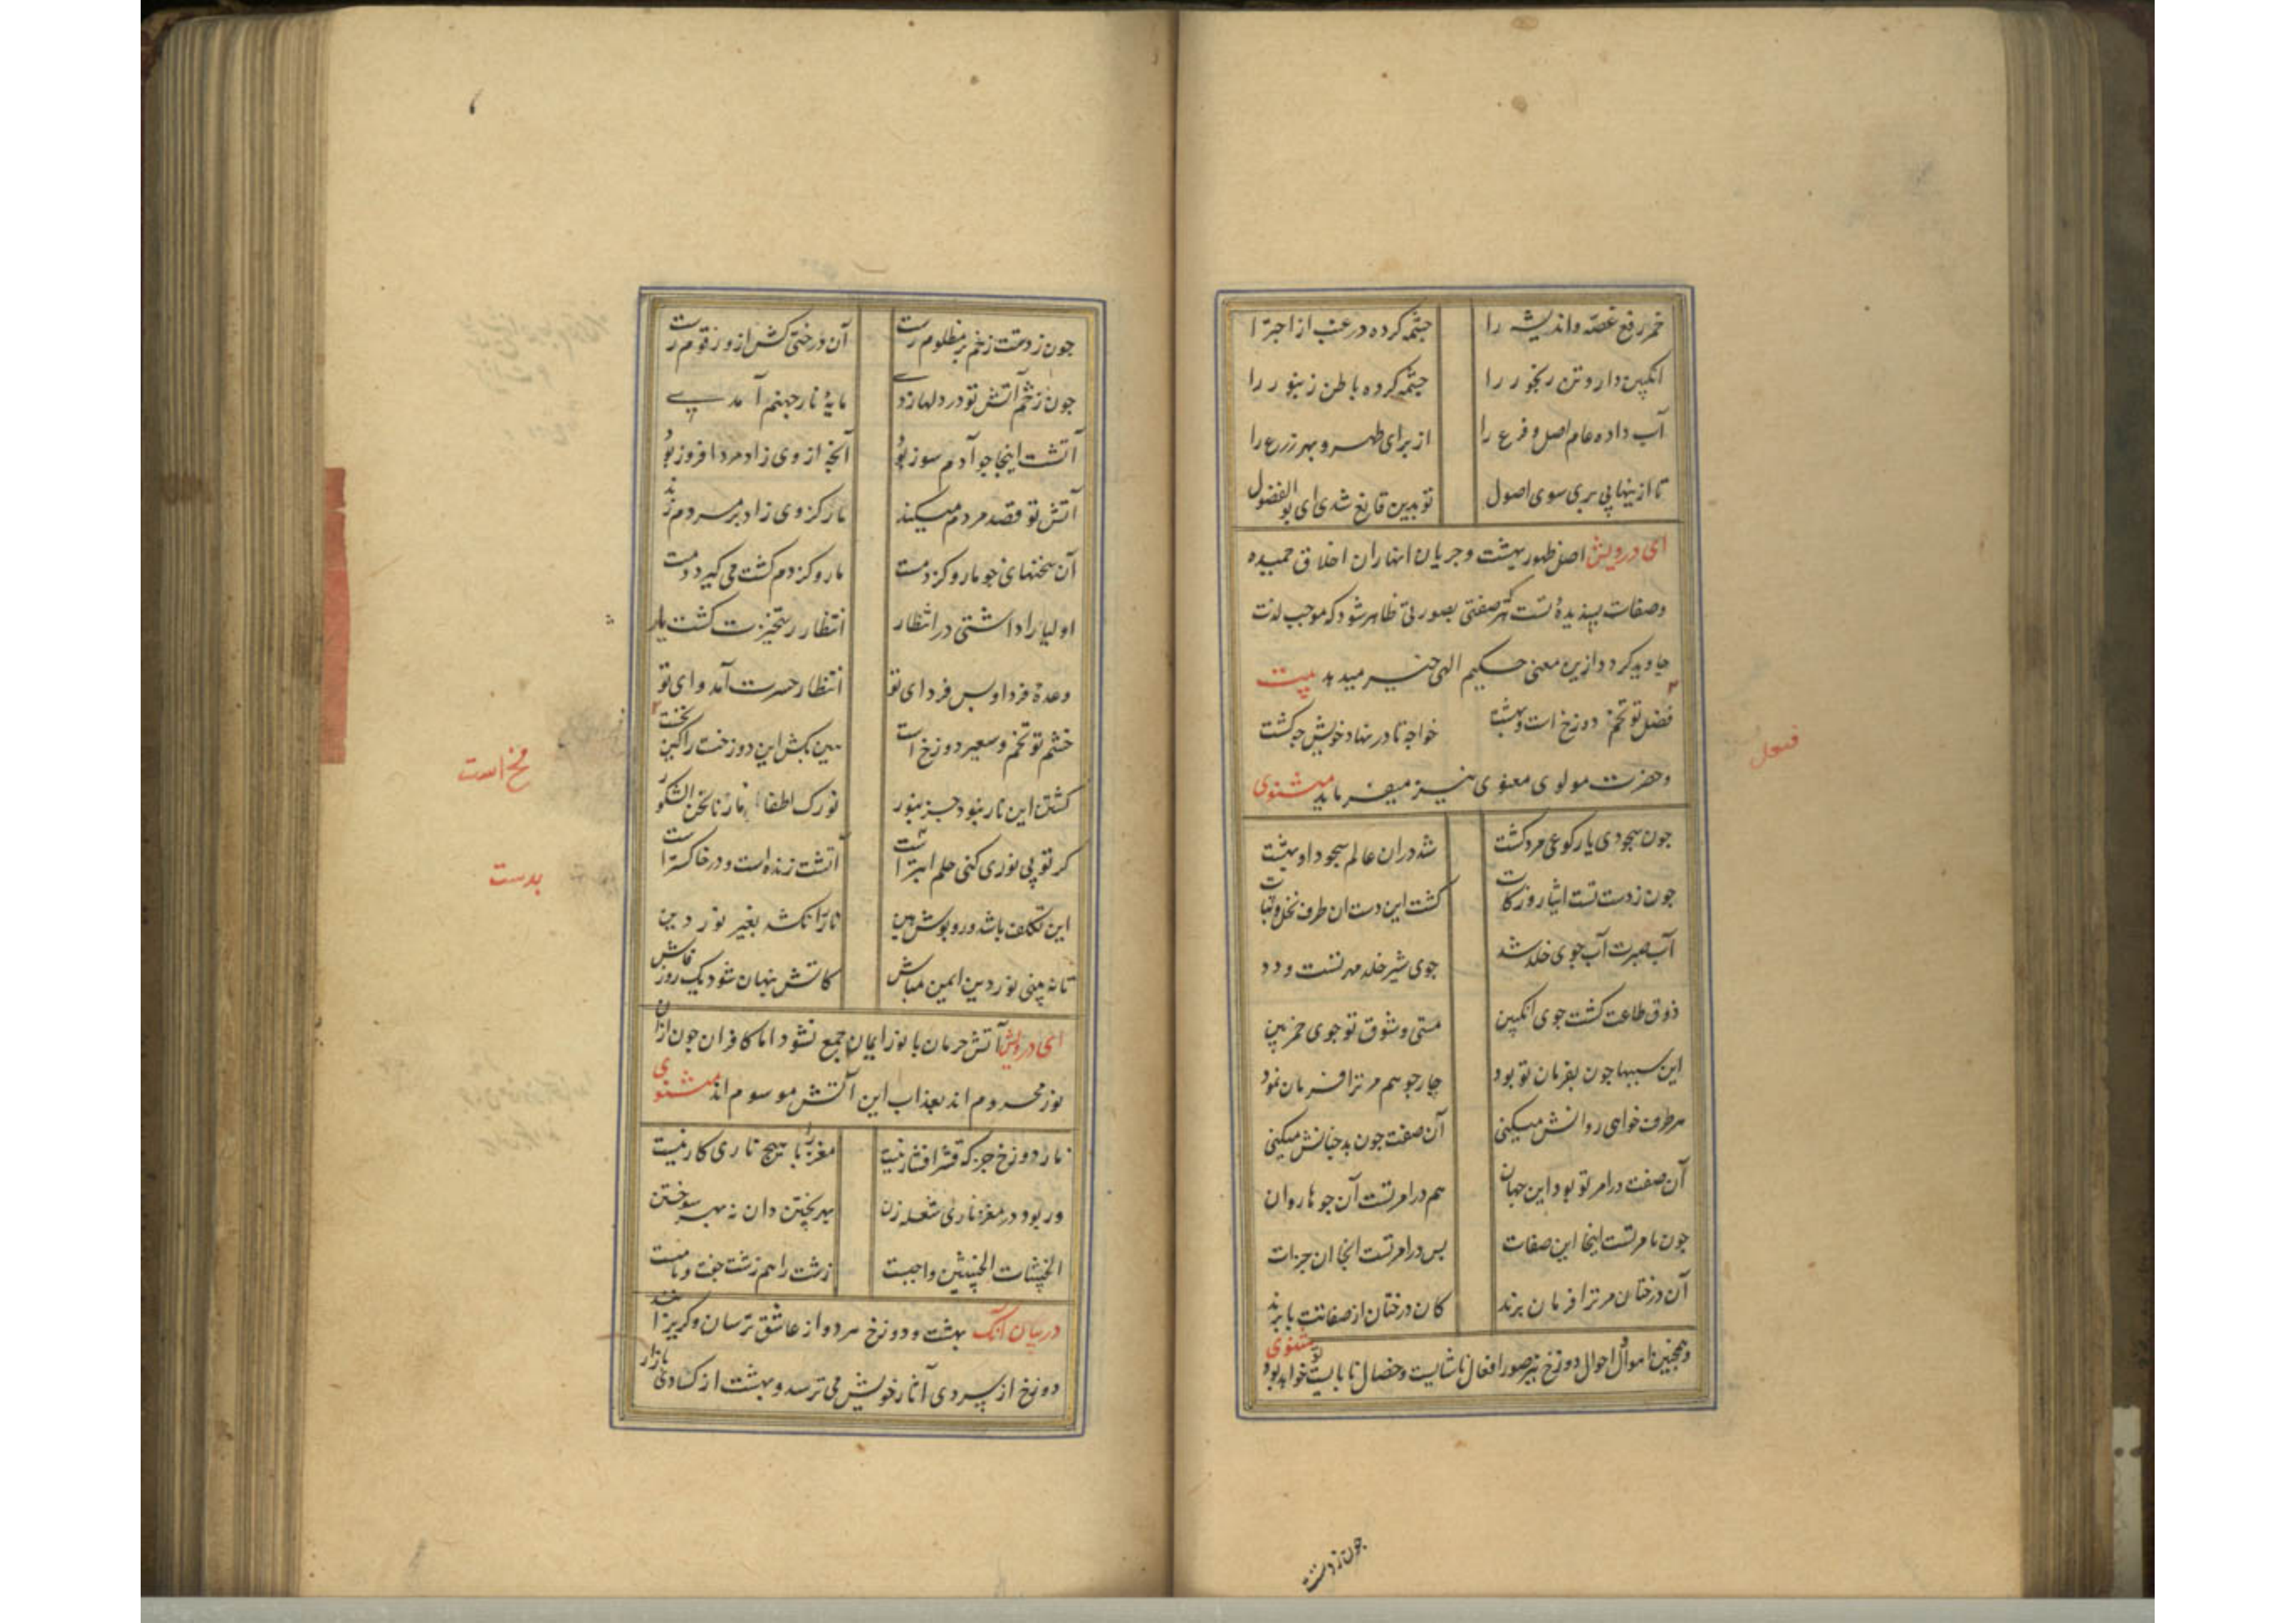 خمر رفع غصه و اندیشه را چشمه کرده در عنب از اجترا
انکبین داروی تن رنجور را چشمه کرده باطن زنبور را
آب داده عام اصل و فرع را از برای طهر و بهر زرع را
تا ازینها پی بری سوی اصول تو بدین قانع شدی ای بوالفضول
ای درویش اصل ظهور بهشت و جریان انهاران اخلاق حمیده
و صفات پسندیدهٔ تست که هر صفتی بصورتی ظاهر شود که موجب لذت
جاوید کردد ازین معنی حکیم الهی خبر میدهد بیت
فضل تو تخم دوزخ است و بهشت خواجه تا در نهاد خویش چه کشت
فعل
و حضرت مولوی معنوی نیز میفرماید مثنوی
جون سجودی یا رکوعی مرد کشت شد دران عالم سجود او بهشت
جون ز دست تست ایثار و زکات کشت این دست ان طرف نخل و نبات
آب صبرت آب جوی خلد شد جوی شیر خلد مهر تست و ود
ذوق طاعت کشت جوی انکبین مستی و شوق تو جوی خمر بین
این سببها جون بفرمان تو بود جار جو هم مر ترا فرمان نمود
هر طرف خواهی روانش میکنی آن صفت جون بد جنانش میکنی
آن صفت در امر تو بود این جهان هم در امر تست آن جوها روان
جون بامر تست اینجا این صفات بس در امر تست انجا ان جزات
آن درختان مر ترا فرمان برند کان درختان از صفاتت با برند
و همجنین اموال و احوال دوزخ نیز صور افعال ناشایست و خصال نابایست تو خواهد بود مثنوی
جون ز دست
جون ز دستت زخم بر مظلوم رست آن درختی کشت ازو زقوم رست
جون ز خشم آتش تو در دلها زدی مایهٔ نار جهنم آمدی
آتشت اینجا جو آدم سوز بود آنجه از وی زاد مرد افروز بود
آتش تو قصد مردم میکند نار کز وی زاد بر مردم زند
آن سخنهای جو مار و کژدمت مار و کژدم کشت می کیرد دمت
اولیا را داشتی در انتظار انتظار رستخیزت کشت یار
وعدهٔ فردا و بس فردای تو انتظار حسرت آمد وای تو
خشم تو تخم و سعیر دوزخ است هین بکش این دوزخت را کین فخست
فخ است
کشتن این نار نبود جز بنور نورک اطفا نارنا نحن الشکور
کر تو بی نوری کنی حلم ابتراست آتشت زنده است و در خاکستراست
بدست
این تکلف باشد و روپوش هین نار را نکشد بغیر نور دین
تا نه بینی نور دین ایمن مباش کاتش پنهان شود یک روز فاش
ای درویش آتش حرمان با نور ایمان جمع نشود اما کافران جون ازان
نور محروم اند بعذاب این آتش موسوم اند مثنوی
نار دوزخ جز که قشر افشار نیست مغز را با هیج ناری کار نیست
ور بود در مغز ناری شعله زن بهر پختن دان نه بهر سوختن
الخبیثات الخبیثین واجبست زشت را هم زشت جفت و بابتست
در بیان آنک بهشت و دوزخ هر دو از عاشق ترسان و کریزانند
دوزخ از سردی آثار خویش می ترسد و بهشت از کسادی بازار